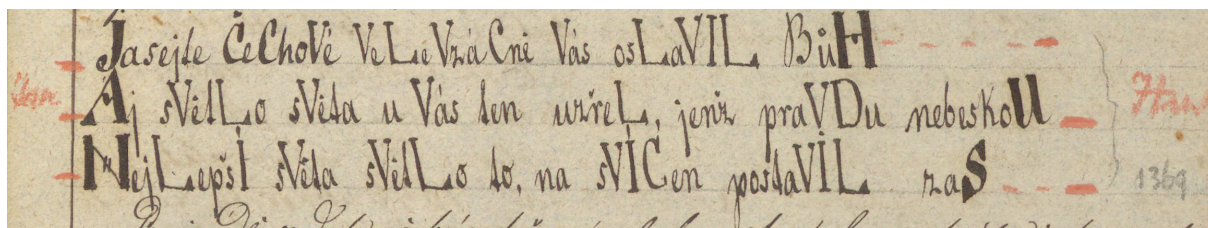 Jasejte ČeChoVé VeLeVzáCní Vás osLaVIL BůH
Jan Aj sVětLo sVěta u Vás ten uzřeL, jenž praVDu nebeskoU Hus
NejLepší sVěta sVětLo to, na sVÍCen postaVIL zaS 1369